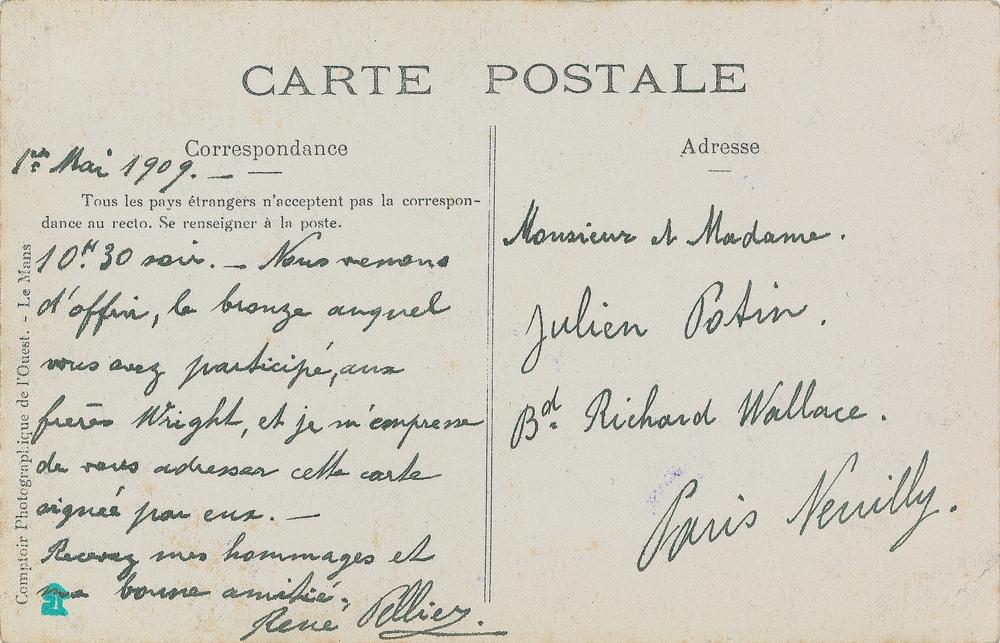 CARTE POSTALE
Correspondance
1er Mai 1909. —
Tous les pays étrangers n'acceptent pas la correspon-
dance au recto. Se renseigner à la poste.
10H. 30 soir. — Nous venons
d'offrir, le bronze auquel
vous avez participé, aux
frères Wright, et je m'empresse
de vous adresser cette carte
signée par eux. —
Recevez mes hommages et
ma bonne amitié.
René Pellier.
Adresse
Monsieur et Madame.
Julien Potin.
Bd. Richard Wallace.
Paris Neuilly.
Comptoir Photographique de l'Ouest. - Le Mans